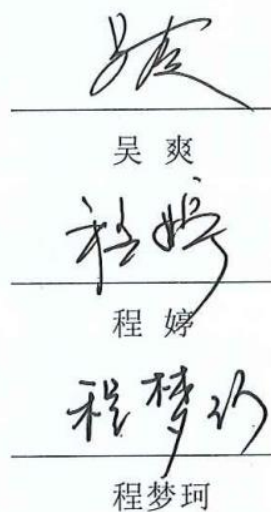 吴爽
吴 爽
程婷
程 婷
程梦珂
程梦珂